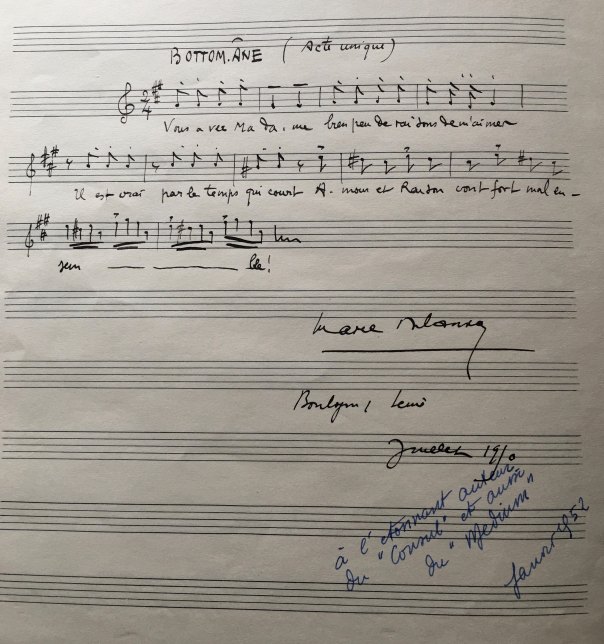 BOTTOM.ÂNE (Acte unique)
Vous avez Mada.me bien peu de raisons de m'aimer
Il est vrai par le temps qui court A.mour et Raison vont fort mal en-
sem ble!
Juillet 19
à l'étonnant auteur
du "Consul" et aussi
du "Medium"
Janvier 1952